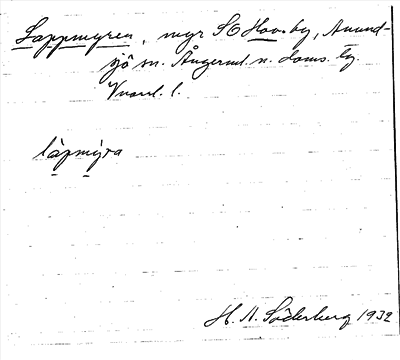 Lappmyren, myr SO Hoo by, Anund-
sjö sn. Ångerml. n. doms. tg.
Vnorrl. l.
lapmýra
H. N. Söderberg 1932